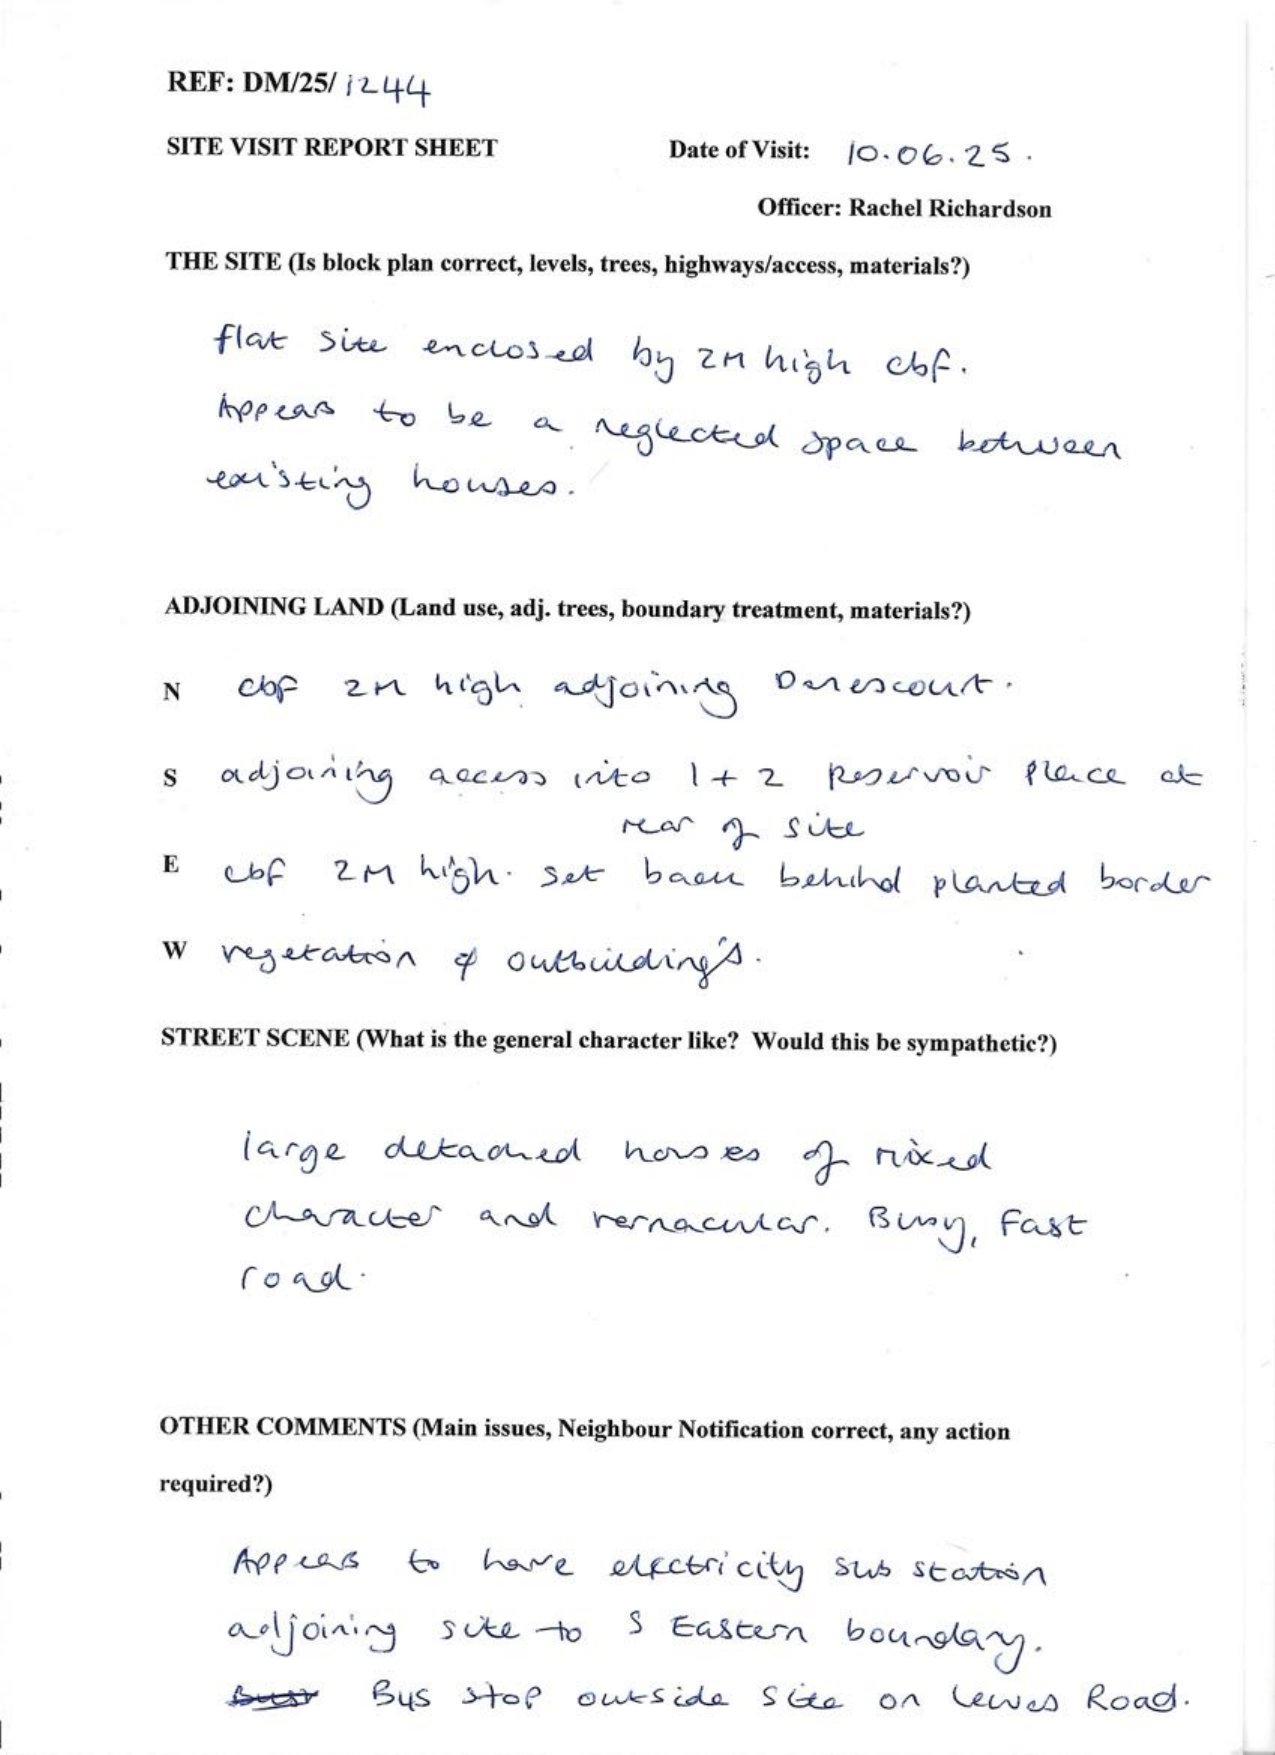 REF: DM/25/ 1244
SITE VISIT REPORT SHEET Date of Visit: 10.06.25.
Officer: Rachel Richardson
THE SITE (Is block plan correct, levels, trees, highways/access, materials?)
flat site enclosed by 2M high cbf.
Appears to be a neglected space between
existing houses.
ADJOINING LAND (Land use, adj. trees, boundary treatment, materials?)
N cbf 2M high adjoining Danescourt.
S adjoining access into 1 + 2 Reservoir Place at
rear of site
E cbf 2M high. set back behind planted border
W vegetation & outbuildings.
STREET SCENE (What is the general character like? Would this be sympathetic?)
large detached houses of mixed
character and vernacular. Busy, Fast
road.
OTHER COMMENTS (Main issues, Neighbour Notification correct, any action
required?)
Appears to have electricity sub station
adjoining site to S Eastern boundary.
Bus stop outside site on Lewes Road.